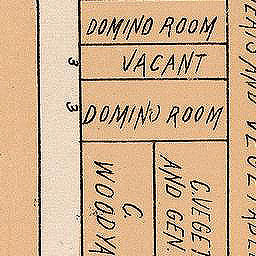 DOMINO ROOM
3
VACANT
3
DOMINO ROOM
C.
WOODYA
C.VEGET
AND GEN.
AND VEGETABLE